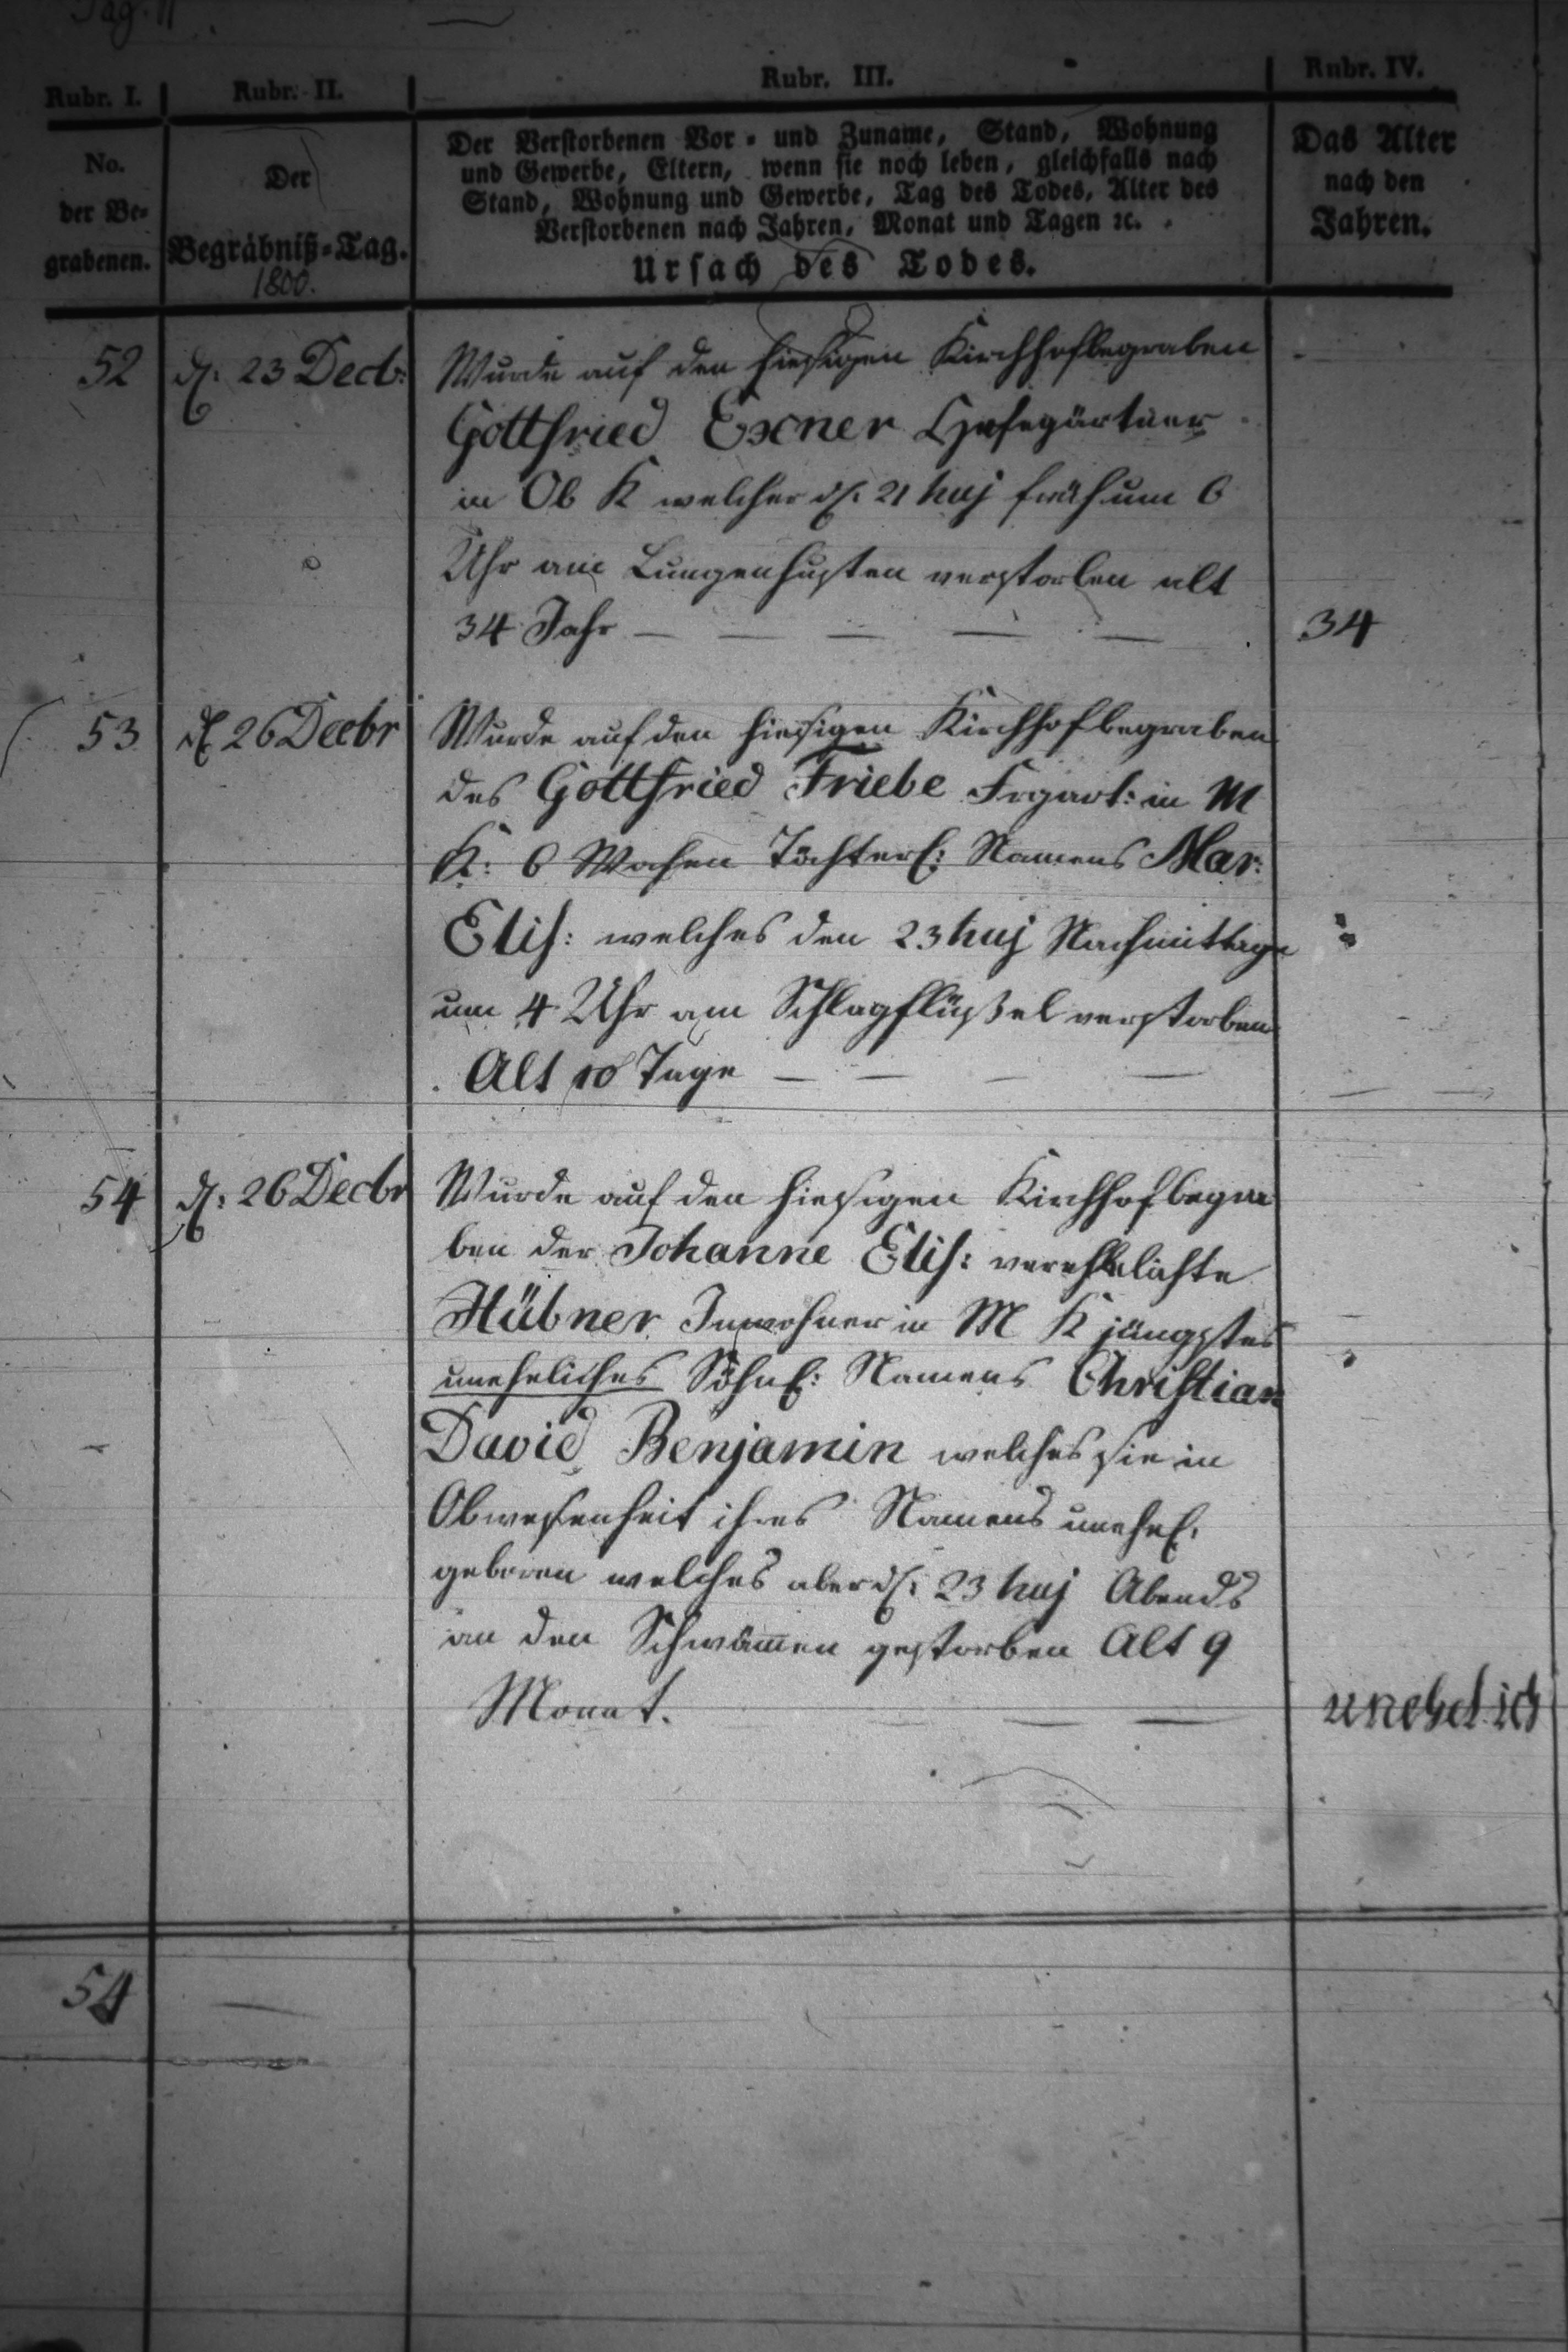 Pag. 11
Rubr. I. Rubr. II. Rubr. III. Rubr. IV.
No. der Be= grabenen.
Der Begräbniß=Tag. 1800.
Der Verstorbenen Vor= und Zuname, Stand, Wohnung
und Gewerbe, Eltern, wenn sie noch leben, gleichfalls nach
Stand, Wohnung und Gewerbe, Tag des Todes, Alter des
Verstorbenen nach Jahren, Monat und Tagen ꝛc.
Ursach des Todes.
Das Alter nach den Jahren.
52 d. 23 Decb: Wurde auf den hiesigen Kirchhof begraben
Gottfried Exner Hofegärtner
in Ob K welcher d. 21 huj früh um 6
Uhr am Lungenhusten verstorben alt
34 Jahr — — — — — 34
53 d 26 Decbr Wurde auf den hiesigen Kirchhof begraben
des Gottfried Friebe Frgärt: in M
K: 6 Wochen Töchterl: Namens Mar:
Elis: welches den 23 huj Nachmittage
um 4 Uhr am Schlagflüßel verstorben
Alt 10 Tage — — — —
54 d: 26 Decbr Wurde auf den hiesigen Kirchhof begra
ben der Johanne Elis: verehelichte
Hübner Inwohner in M K jüngstes
uneheliches Söhnl: Namens Christian
David Benjamin welches sie in
Abwesenheit ihres Namens unehel.
geboren welches aber d: 23 huj Abends
an den Schwämen gestorben Alt 9
Monat. — — unehelich
54